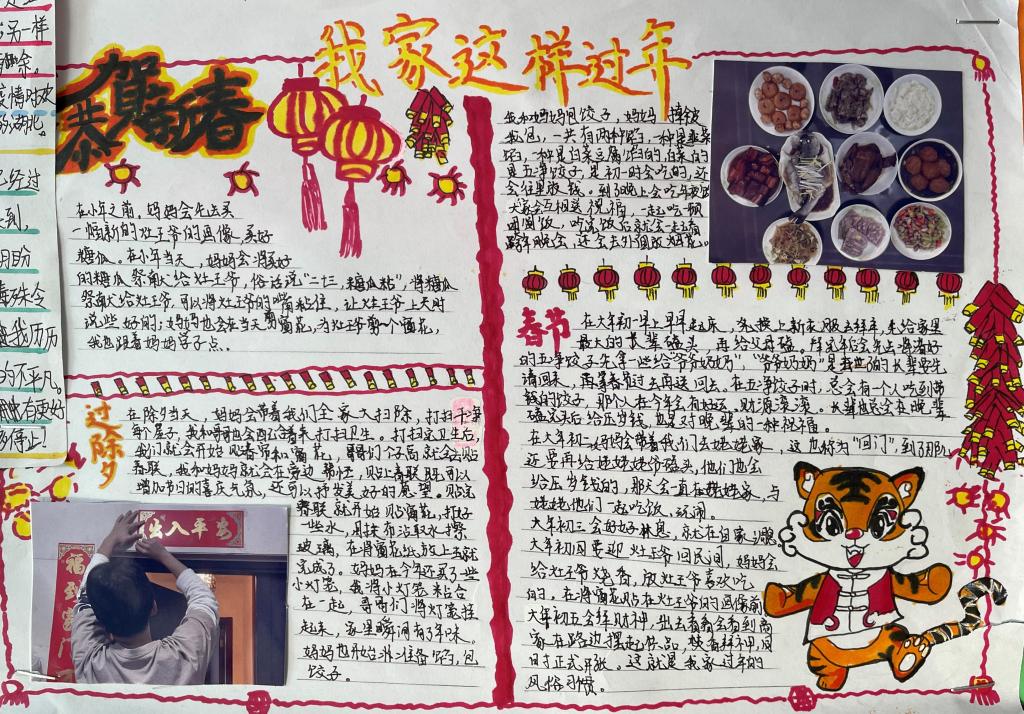 我家这样过年
恭贺新春
在小年之前，妈妈会先去买
一幅新的灶王爷的画像，买好
糖瓜。在小年当天，妈妈会将买好
的糖瓜祭献给灶王爷，俗话说"二十三，糖瓜粘"，将糖瓜
祭献给灶王爷，可以将灶王爷的嘴粘住，让灶王爷上天时
说些好的；妈妈也会在当天剪窗花，为灶王爷剪一个窗花，
我也跟着妈妈学了点。
过除夕
在除夕当天，妈妈会带着我们全家大扫除，打扫干净
每个屋子，我和哥哥也会配合着来打扫卫生。打扫完卫生后，
我们就会开始贴春联和窗花，哥哥们个子高就会去贴
春联，我和妈妈就会在旁边帮忙，贴上春联既可以
增加节日的喜庆气氛，还可以抒发美好的愿望。贴完
春联就开始贴窗花，打好
一些水，用抹布沾取水擦
玻璃，在将窗花纸放上去就
完成了。妈妈在今年还买了一些
小灯笼，我将小灯笼来合
在一起，哥哥们将灯笼挂
起来，家里瞬间有了年味。
妈妈也开始准备馅，包
饺子。
出入平安
福到家门
我和妈妈包饺子，妈妈
我包，一共有两种馅，一种是韭菜
馅，一种是白菜豆腐馅的，白菜的
是五更饺子，是初一时会吃的，还
会往里放钱。到了晚上会吃年夜饭
大家会互相送祝福，一起吃一顿
团圆饭，吃完饭后就会一起看
跨年晚会，还会去外面放烟花。
春节
在大年初一早上早早起床，先换上新衣服去拜年，先给家里
最大的长辈磕头，再给父母磕。拜完年后会先去将煮好
的五更饺子先拿一些给爷爷奶奶"爷爷奶奶"是去世的长辈要先
请回来，再拿着煮过去再送回去。在五更饺子时，总会有一个人吃到带
钱的饺子，那个人在今年会有好运。财源滚滚。长辈也总会在晚辈
磕完头后给压岁钱，也是对晚辈的一种祝福。
在大年初二妈妈会带着我们去姥姥家，这也称为"回门"，到了那儿
还要再给姥姥姥爷磕头，他们也会
给压岁钱的，那天会一直在姥姥家，与
姥姥他们一起吃饭、玩闹。
大年初三会好好休息，就在自家
大年初四要迎灶王爷回民间，妈妈会
给灶王爷烧香，放灶王爷喜欢吃
的，在将窗花贴在灶王爷的画像前
大年初五会拜财神，出去看看会看到商
家在路边摆起供品，焚香拜神，同
日时正式开张。这就是我家过年的
风俗习惯。
另一样
疫情时次
的湖北。
已经过
到，
月份
我历历
的不平凡。
有更好
停止！